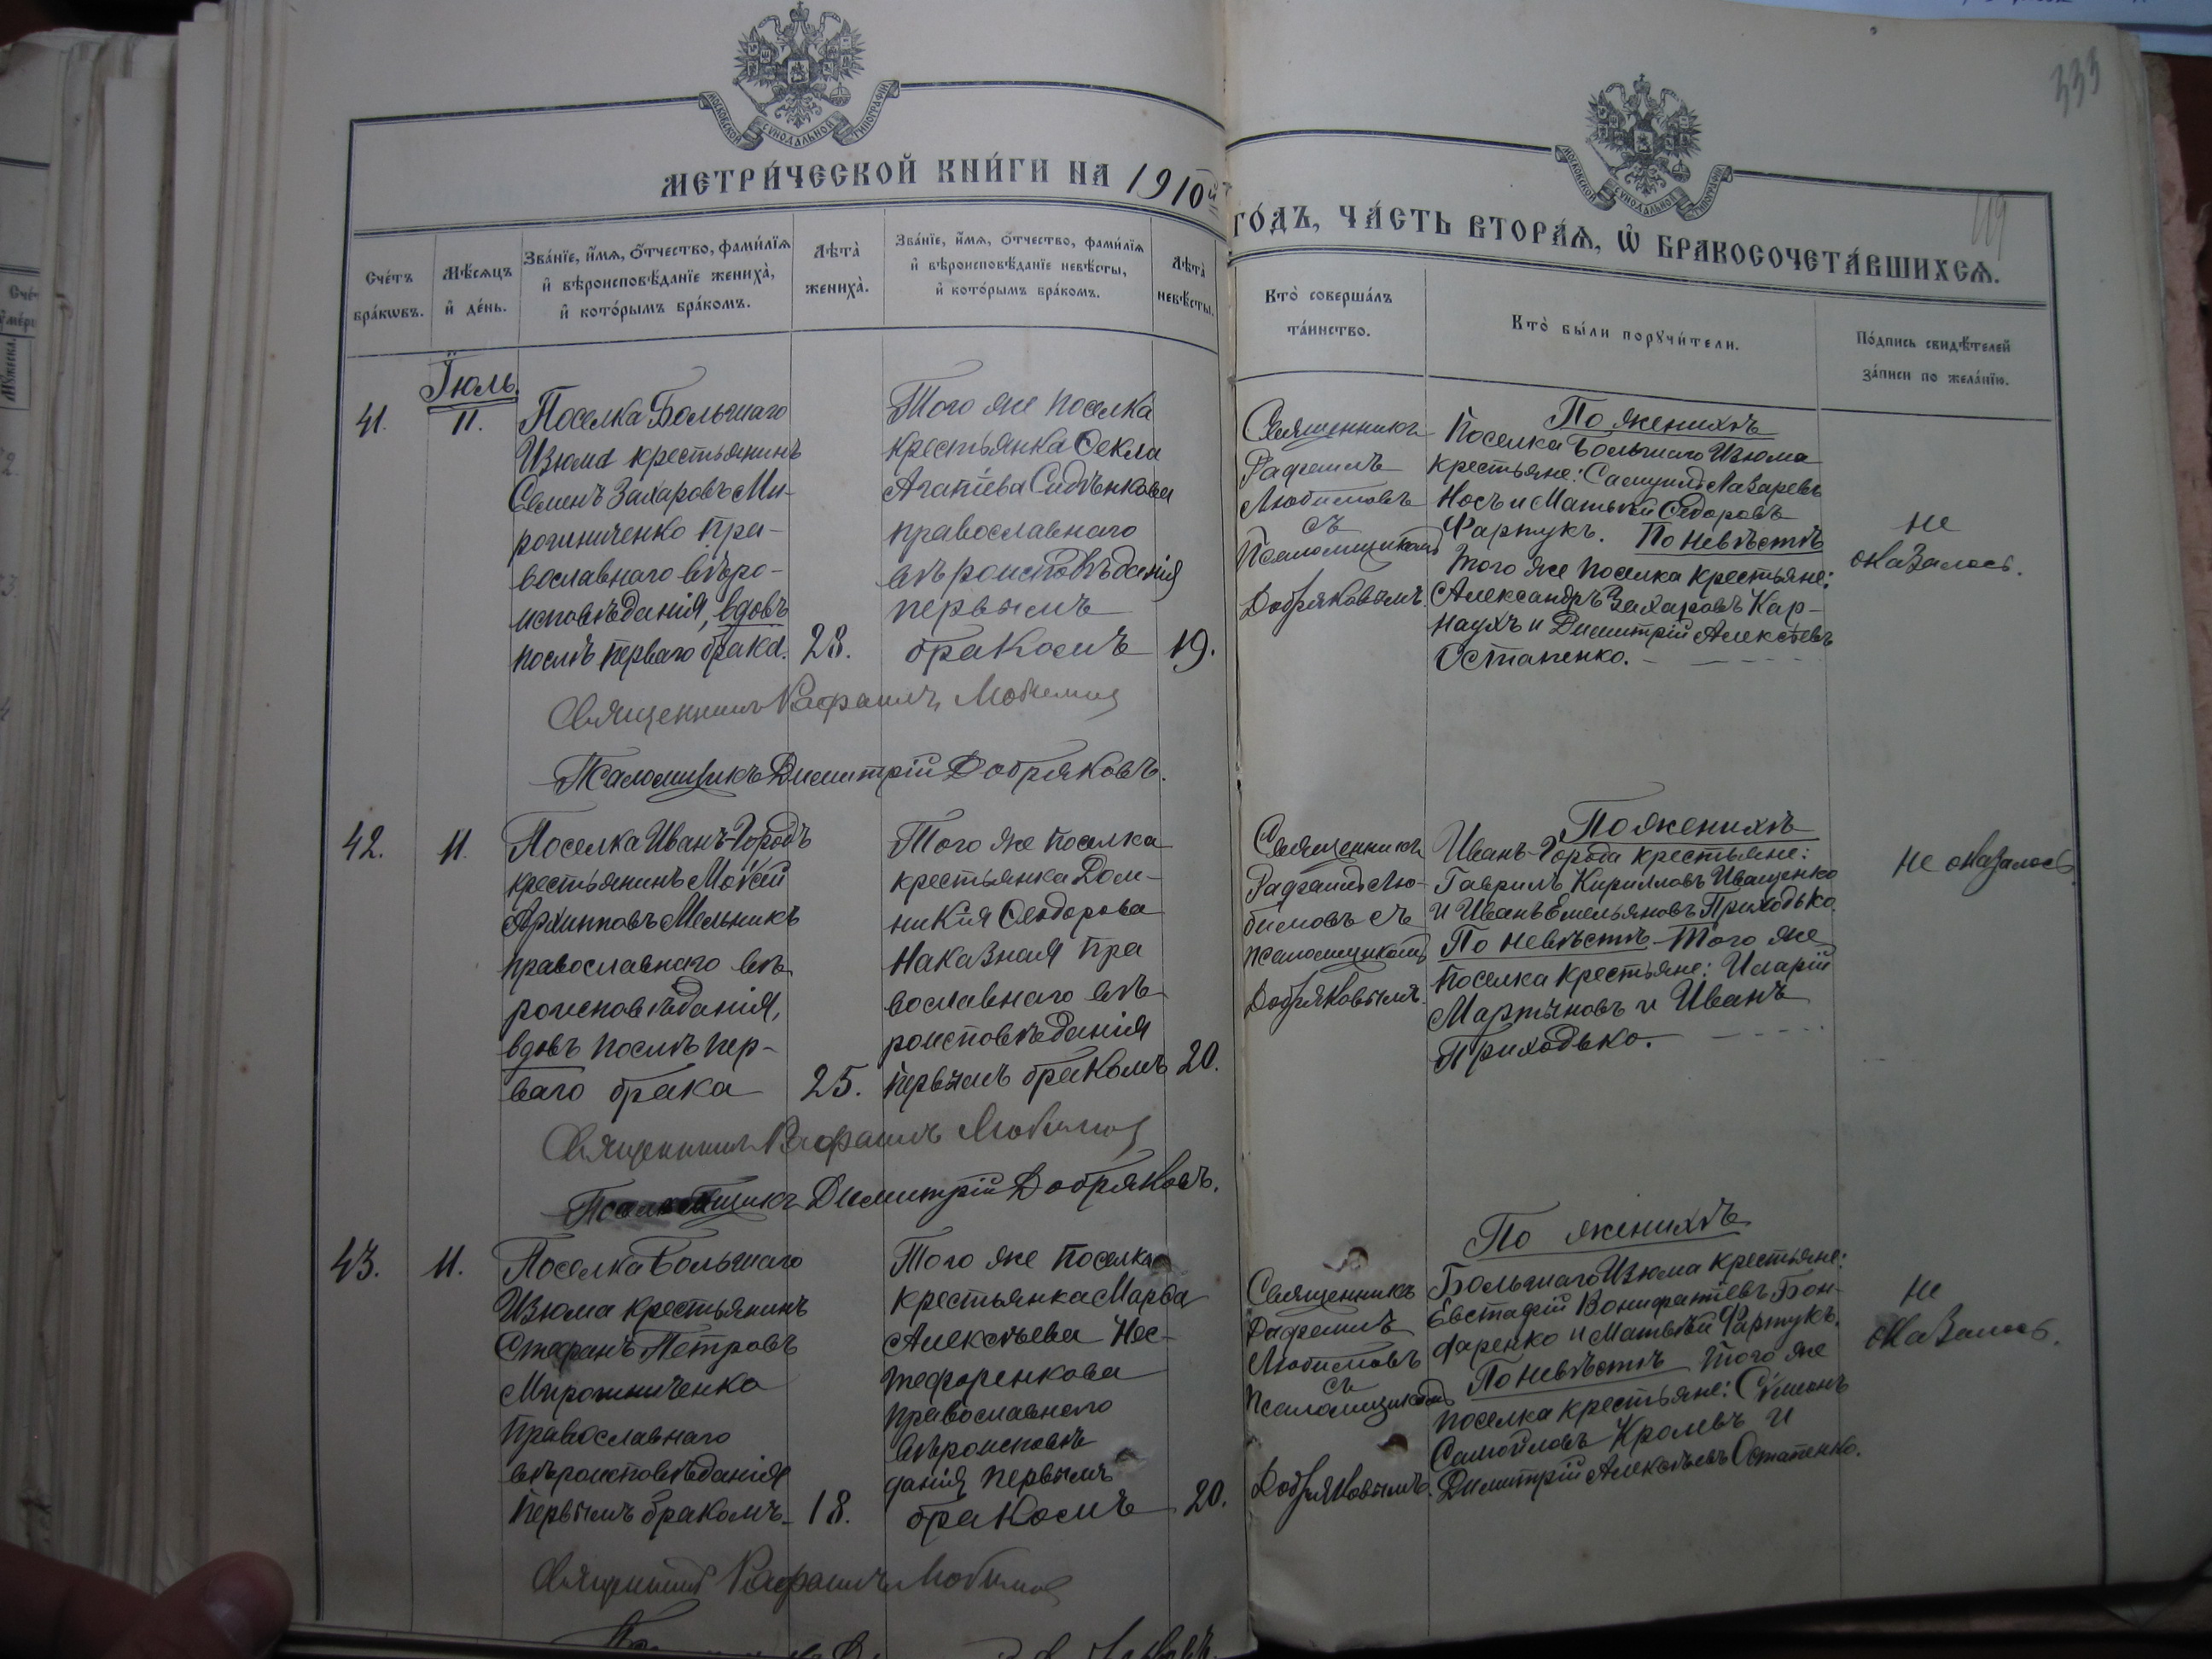 333
119
МОСКОВСКОЙ СѴНОДАЛЬНОЙ ТИПОГРАФІИ
МОСКОВСКОЙ СѴНОДАЛЬНОЙ ТИПОГРАФІИ
МЕТРИ́ЧЕСКОЙ КНИ́ГИ НА 1910й
ГО́ДЪ, ЧА́СТЬ ВТОРА́Ѧ, Ѽ БРАКОСОЧЕТА́ВШИХСѦ.
Сче́тъ
бра́кѡвъ.
Мѣ́сѧцъ
и҆ де́нь.
Зва́нїе, и҆́мѧ, ѻ҆́тчество, фами́лїѧ
и҆ вѣроисповѣ́данїе жениха̀,
и҆ кото́рымъ бра́комъ.
Лѣта̀
жениха̀.
Зва́нїе, и҆́мѧ, ѻ҆́тчество, фами́лїѧ
и҆ вѣроисповѣ́данїе невѣ́сты,
и҆ кото́рымъ бра́комъ.
Лѣта̀
невѣ́сты.
Кто̀ соверша́лъ
та́инство.
Кто̀ бы́ли порꙋчи́тели.
По́дпись свидѣ́телей
за́писи по жела́нїю.
Іюль.
41.
11.
Поселка Большаго
Изюма крестьянинъ
Семенъ Захаровъ Ми-
рошниченко пра-
вославнаго вѣро-
исповѣданія, вдовъ
послѣ перваго брака.
28.
Того же поселка
крестьянка Ѳекла
Агапіева Сидѣнкова
православнаго
вѣроисповѣданія
первымъ
бракомъ
19.
Священникъ
Рафаилъ
Любимовъ
съ
Псаломщикомъ
Добряковымъ.
По женихѣ
Поселка Большаго Изюма
крестьяне: Самуилъ Лазаревъ
Носъ и Матвѣй Ѳедоровъ
Фартукъ. По невѣстѣ
того же поселка крестьяне:
Александръ Захаровъ Кар-
наухъ и Димитрій Алексѣевъ
Остапенко.
не
оказалось.
Священникъ Рафаилъ Любимовъ
Псаломщикъ Димитрій Добряковъ.
42.
11.
Поселка Иванъ-Городъ
крестьянинъ Моѵсей
Архипповъ Мельникъ
православнаго вѣ-
роисповѣданія,
вдовъ послѣ пер-
ваго брака
25.
Того же поселка
крестьянка Дом-
никія Ѳеодорова
Наказная пра
вославнаго вѣ-
роисповѣданія
первымъ бракомъ
20.
Священникъ
Рафаилъ Лю-
бимовъ съ
псаломщикомъ
Добряковымъ.
По женихѣ
Иванъ-Города крестьяне:
Гаврилъ Кирилловъ Иващенко
и Иванъ Емельяновъ Приходько.
По невѣстѣ Того же
поселка крестьяне: Иларій
Мартыновъ и Иванъ
Приходько.
не оказалось.
Священникъ Рафаилъ Любимовъ
Псаломщикъ Димитрій Добряковъ.
43.
11.
Поселка Большаго
Изюма крестьянинъ
Стефанъ Петровъ
Мирошниченко
православнаго
вѣроисповѣданія
первымъ бракомъ
18.
Того же поселка
крестьянка Марѳа
Алексѣева Нес-
тефоренкова
православнаго
вѣроисповѣ
данія первымъ
бракомъ
20.
Священникъ
Рафаилъ
Любимовъ
съ
псаломщикомъ
Добряковымъ.
По женихѣ
Большаго Изюма крестьяне:
Евстафій Вонифатіевъ Бон-
даренко и Матвѣй Фартукъ.
По невѣстѣ того же
поселка крестьяне: Сѵмеонъ
Самойловъ Кролевъ и
Димитрій Алексѣевъ Остапенко.
не
оказалось.
Священникъ Рафаилъ Любимов